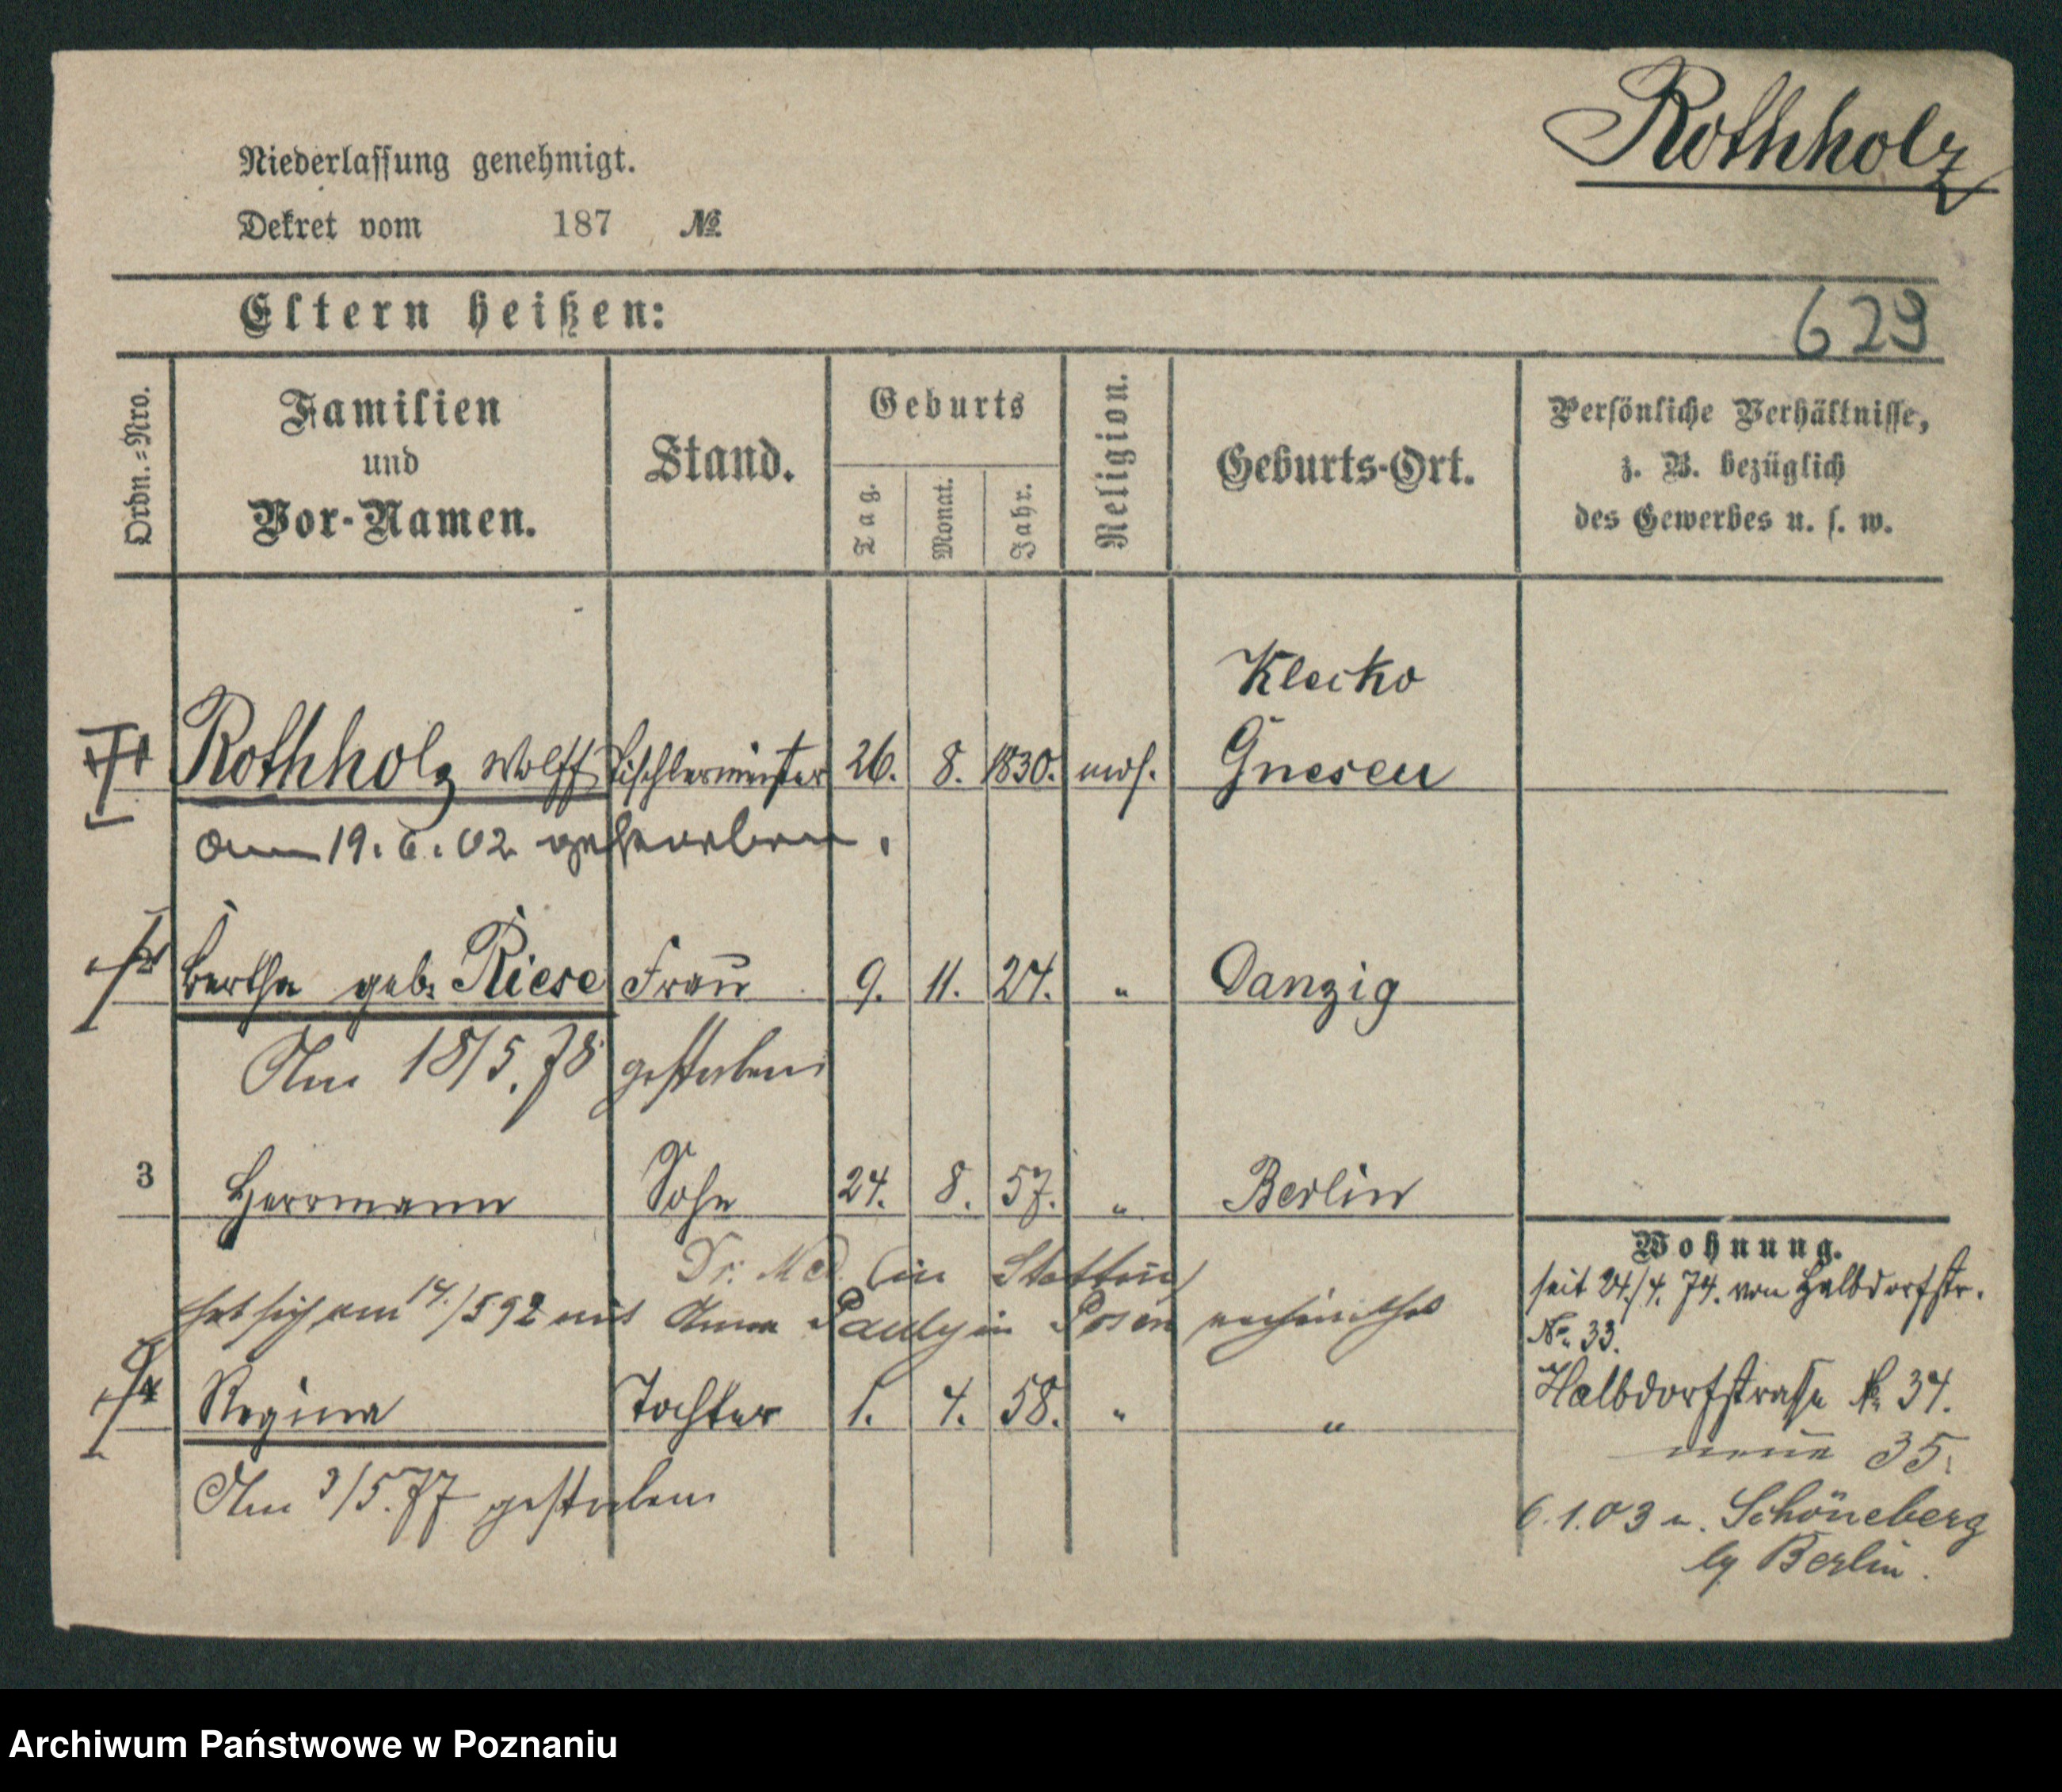 Rothholz
Niederlassung genehmigt.
Dekret vom 187 №
Eltern heißen:
629
Ordn.=Nro.
Familien
und
Vor-Namen.
Stand.
Geburts
Tag.
Monat.
Jahr.
Religion.
Geburts-Ort.
Persönliche Verhältnisse,
z. B. bezüglich
des Gewerbes u. s. w.
Klecko
1 Rothholz Wolff Tischlermeister 26. 8. 1830. mos. Gnesen
am 19. 6. 02 gestorben.
2 Bertha geb. Riese Frau 9. 11. 24. " Danzig
Am 18/5. 78 gestorben
3 Herrmann Sohn 24. 8. 57. " Berlin
Dr. Med. (in Stettin)
hat sich am 14./5 92 mit Anna Pauly in Posen verheirathet
4 Regina Tochter 1. 4. 58. " "
Am 3/5. 77 gestorben
Wohnung.
seit 24./4. 74. von Halbdorfstr.
No. 33.
Halbdorfstrasse No. 34.
neue 35.
6. 1. 03 n. Schöneberg
b/ Berlin.
Archiwum Państwowe w Poznaniu